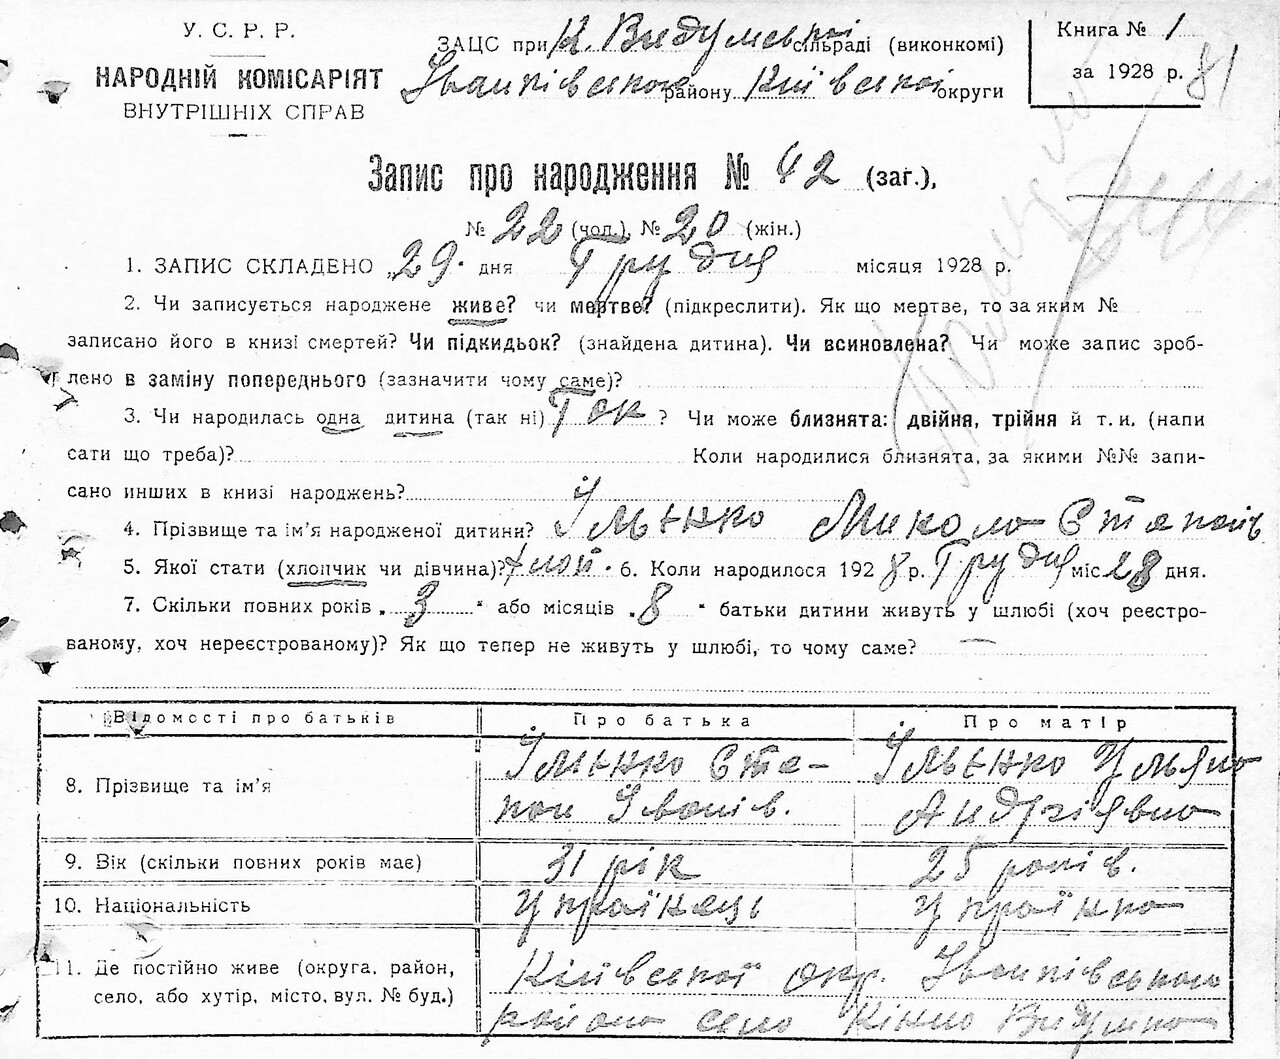 У. С. Р. Р.
НАРОДНІЙ КОМІСАРІЯТ
ВНУТРІШНІХ СПРАВ
ЗАЦС при К. Видумській сільраді (виконкомі)
Іванківського району Київської округи
Книга № 1
за 1928 р.
81
Запис про народження № 42 (заг.),
№ 22 (чол.), № 20 (жін.)
1. ЗАПИС СКЛАДЕНО „29" дня Грудня місяця 1928 р.
2. Чи записується народжене живе? чи мертве? (підкреслити). Як що мертве, то за яким №
записано його в книзі смертей? Чи підкидьок? (знайдена дитина). Чи всиновлена? Чи може запис зроб-
лено в заміну попереднього (зазначити чому саме)?
3. Чи народилась одна дитина (так ні) Так ? Чи може близнята: двійня, трійня й т. и. (напи
сати що треба)? Коли народилися близнята, за якими №№ запи-
сано инших в книзі народжень?
4. Прізвище та ім'я народженої дитини? Ільенко Микола Степанів
5. Якої стати (хлопчик чи дівчина)? 6. Коли народилося 1928 р. Грудня міс 28 дня.
7. Скільки повних років „ 3 " або місяців „ 8 " батьки дитини живуть у шлюбі (хоч реєстро-
ваному, хоч нереєстрованому)? Як що тепер не живуть у шлюбі, то чому саме? —
Відомості про батьків Про батька Про матір
8. Прізвище та ім'я Ільенко Сте- Ільенко Уляна
пан Іванів. Андріявна
9. Вік (скільки повних років має) 31 рік 25 років.
10. Національність Українець Українка
11. Де постійно живе (округа, район, Київської окр. Іванківського
село, або хутір, місто, вул. № буд.) району село Кінно Видумка